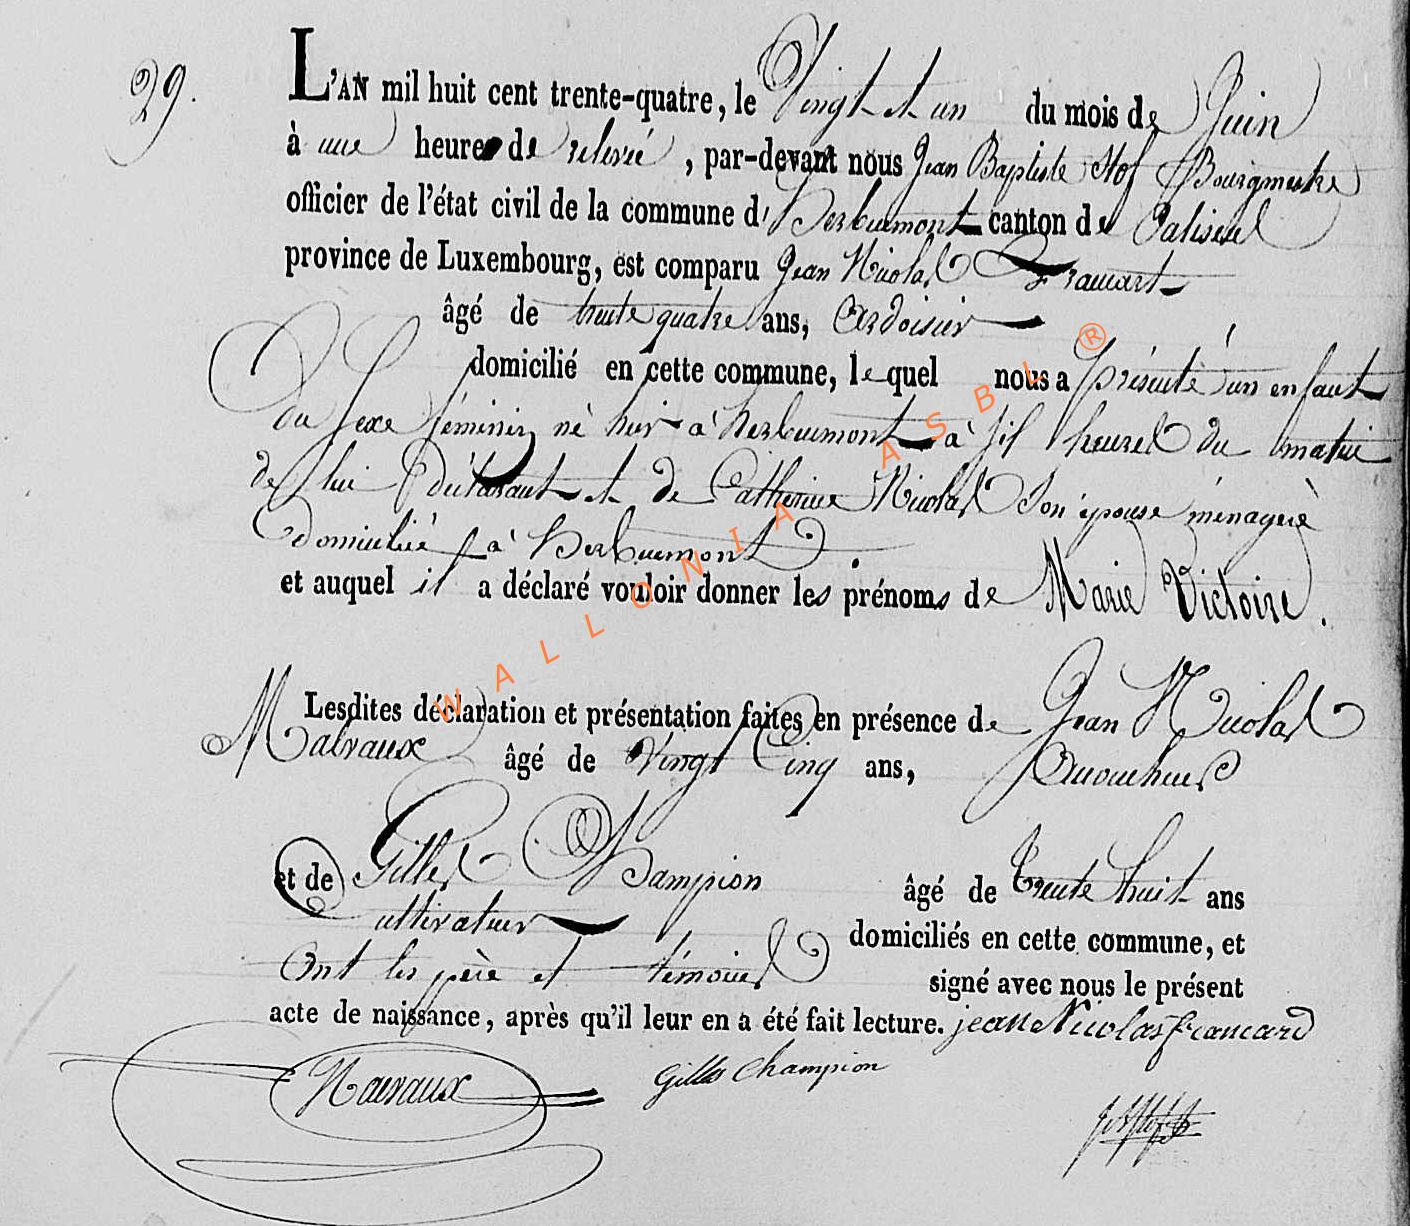 29.
L'AN mil huit cent trente-quatre, le Vingt et un du mois de Juin
à une heure de relevée, par-devant nous Jean Baptiste Stof Bourgmestre
officier de l'état civil de la commune d'herbeumont canton de Paliseul
province de Luxembourg, est comparu Jean Nicolas Francart
âgé de trente quatre ans, Ardoisier
domicilié en cette commune, lequel nous a présenté un enfant
Du sexe féminin né hier à herbeumont à six heures du matin
de lui Déclarant et de Catherine Nicolas son épouse ménagère
domiciliée à herbeumont.
et auquel il a déclaré vouloir donner les prénoms de Marie Victoire.
Lesdites déclaration et présentation faites en présence de Jean Nicolas
Malvaux âgé de Vingt Cinq ans,
et de Gilles Champion âgé de trente huit ans
Cultivateur domiciliés en cette commune, et
Ont les père et témoins signé avec nous le présent
acte de naissance, après qu'il leur en a été fait lecture. jean Nicolas francard
Malvaux Gilles Champion
WALLONIA ASBL ®